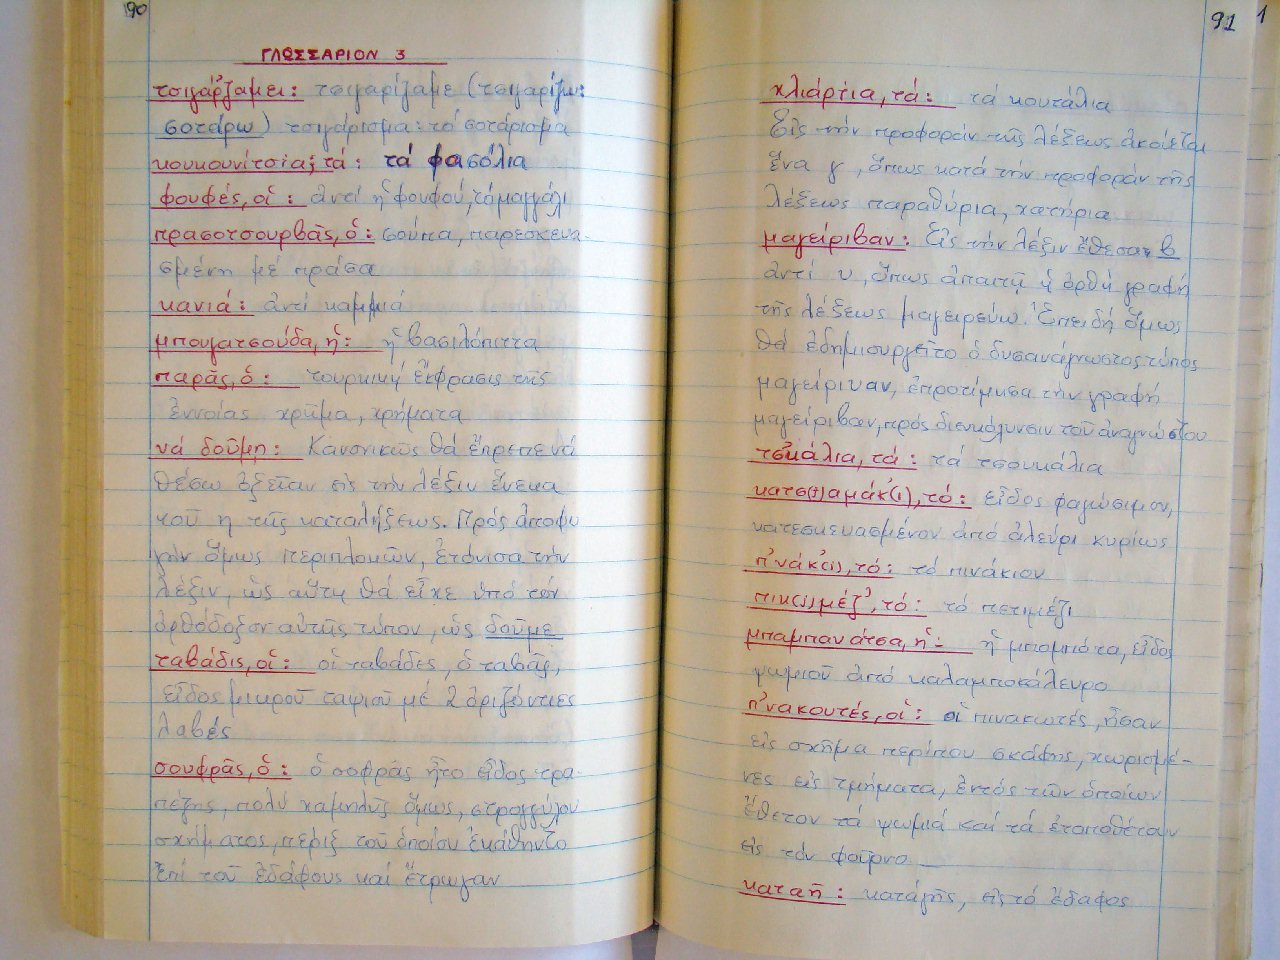 90
ΓΛΩΣΣΑΡΙΟΝ 3
τσιγάῤζαμει: τσιγαρίζαμε (τσιγαρίζω:
σοτάρω) τσιγάρισμα: τό σοτάρισμα
κουκουνίτσια, τά: τά φασόλια
φουφές, οἱ: ἀντί ἡ φουφού, τό μαγγάλι
πρασοτσουρβᾶς, ὁ: σούπα, παρεσκευα-
σμένη μέ πράσα
κανιά: ἀντί καμμιά
μπουγατσούδα, ἡ: ἡ βασιλόπιττα
παρᾶς, ὁ: τουρκική ἔκφρασις τῆς
ἐννοίας χρῆμα, χρήματα
νά δοῦμη: Κανονικῶς θά ἔπρεπε νά
θέσω ὀξεῖαν εἰς τήν λέξιν ἕνεκα
τοῦ η τῆς καταλήξεως. Πρός ἀποφυ
γήν ὅμως περιπλοκῶν, ἐτόνισα τήν
λέξιν, ὡς αὕτη θά εἶχε ὑπό τόν
ὀρθόδοξον αὐτῆς τύπον, ὡς δοῦμε
ταβάδις, οἱ: οἱ ταβάδες, ὁ ταβᾶς,
εἶδος μικροῦ ταψιοῦ μέ 2 ὁριζόντιες
λαβές
σουφρᾶς, ὁ: ὁ σοφράς ἦτο εἶδος τρα-
πέζης, πολύ χαμηλῆς ὅμως, στρογγύλου
σχήματος, πέριξ τοῦ ὁποίου ἐκάθηντο
ἐπί τοῦ ἐδάφους καί ἔτρωγαν
91 1
χλιάρτια, τά: τά κουτάλια
Εἰς τήν προφοράν τῆς λέξεως ἀκούεται
ἕνα γ, ὅπως κατά τήν προφοράν τῆς
λέξεως παραθύρια, χατήρια
μαγείριβαν: Εἰς τήν λέξιν ἔθεσα β
ἀντί υ, ὅπως ἀπαιτῇ ἡ ὀρθή γραφή
τῆς λέξεως μαγειρεύω. Ἐπειδή ὅμως
θά ἐδημιουργεῖτο ὁ δυσανάγνωστος τύπος
μαγείριυαν, ἐπροτίμησα τήν γραφή
μαγείριβαν, πρός διευκόλυνσιν τοῦ ἀναγνώστου
τσ̓κάλια, τά: τά τσουκάλια
κατσ(ι)αμάκ̓(ι), τό: εἶδος φαγώσιμου,
κατεσκευασμένον ἀπό ἀλεύρι κυρίως
π̓νάκ̓(ι), τό: τό πινάκιον
πικ(ι)μέζ̓, τό: τό πετιμέζι
μπαμπανάτσα, ἡ: ἡ μπομπότα, εἶδος
ψωμιοῦ ἀπό καλαμποκάλευρο
π̓νακουτές, οἱ: οἱ πινακωτές, ἦσαν
εἰς σχῆμα περίπου σκάφης, χωρισμέ-
νες εἰς τμήματα, ἐντός τῶν ὁποίων
ἔθετον τά ψωμιά καί τά ἐτοποθέτουν
εἰς τόν φοῦρνο
καταῆ: κατάγῆς, εἰς τό ἔδαφος